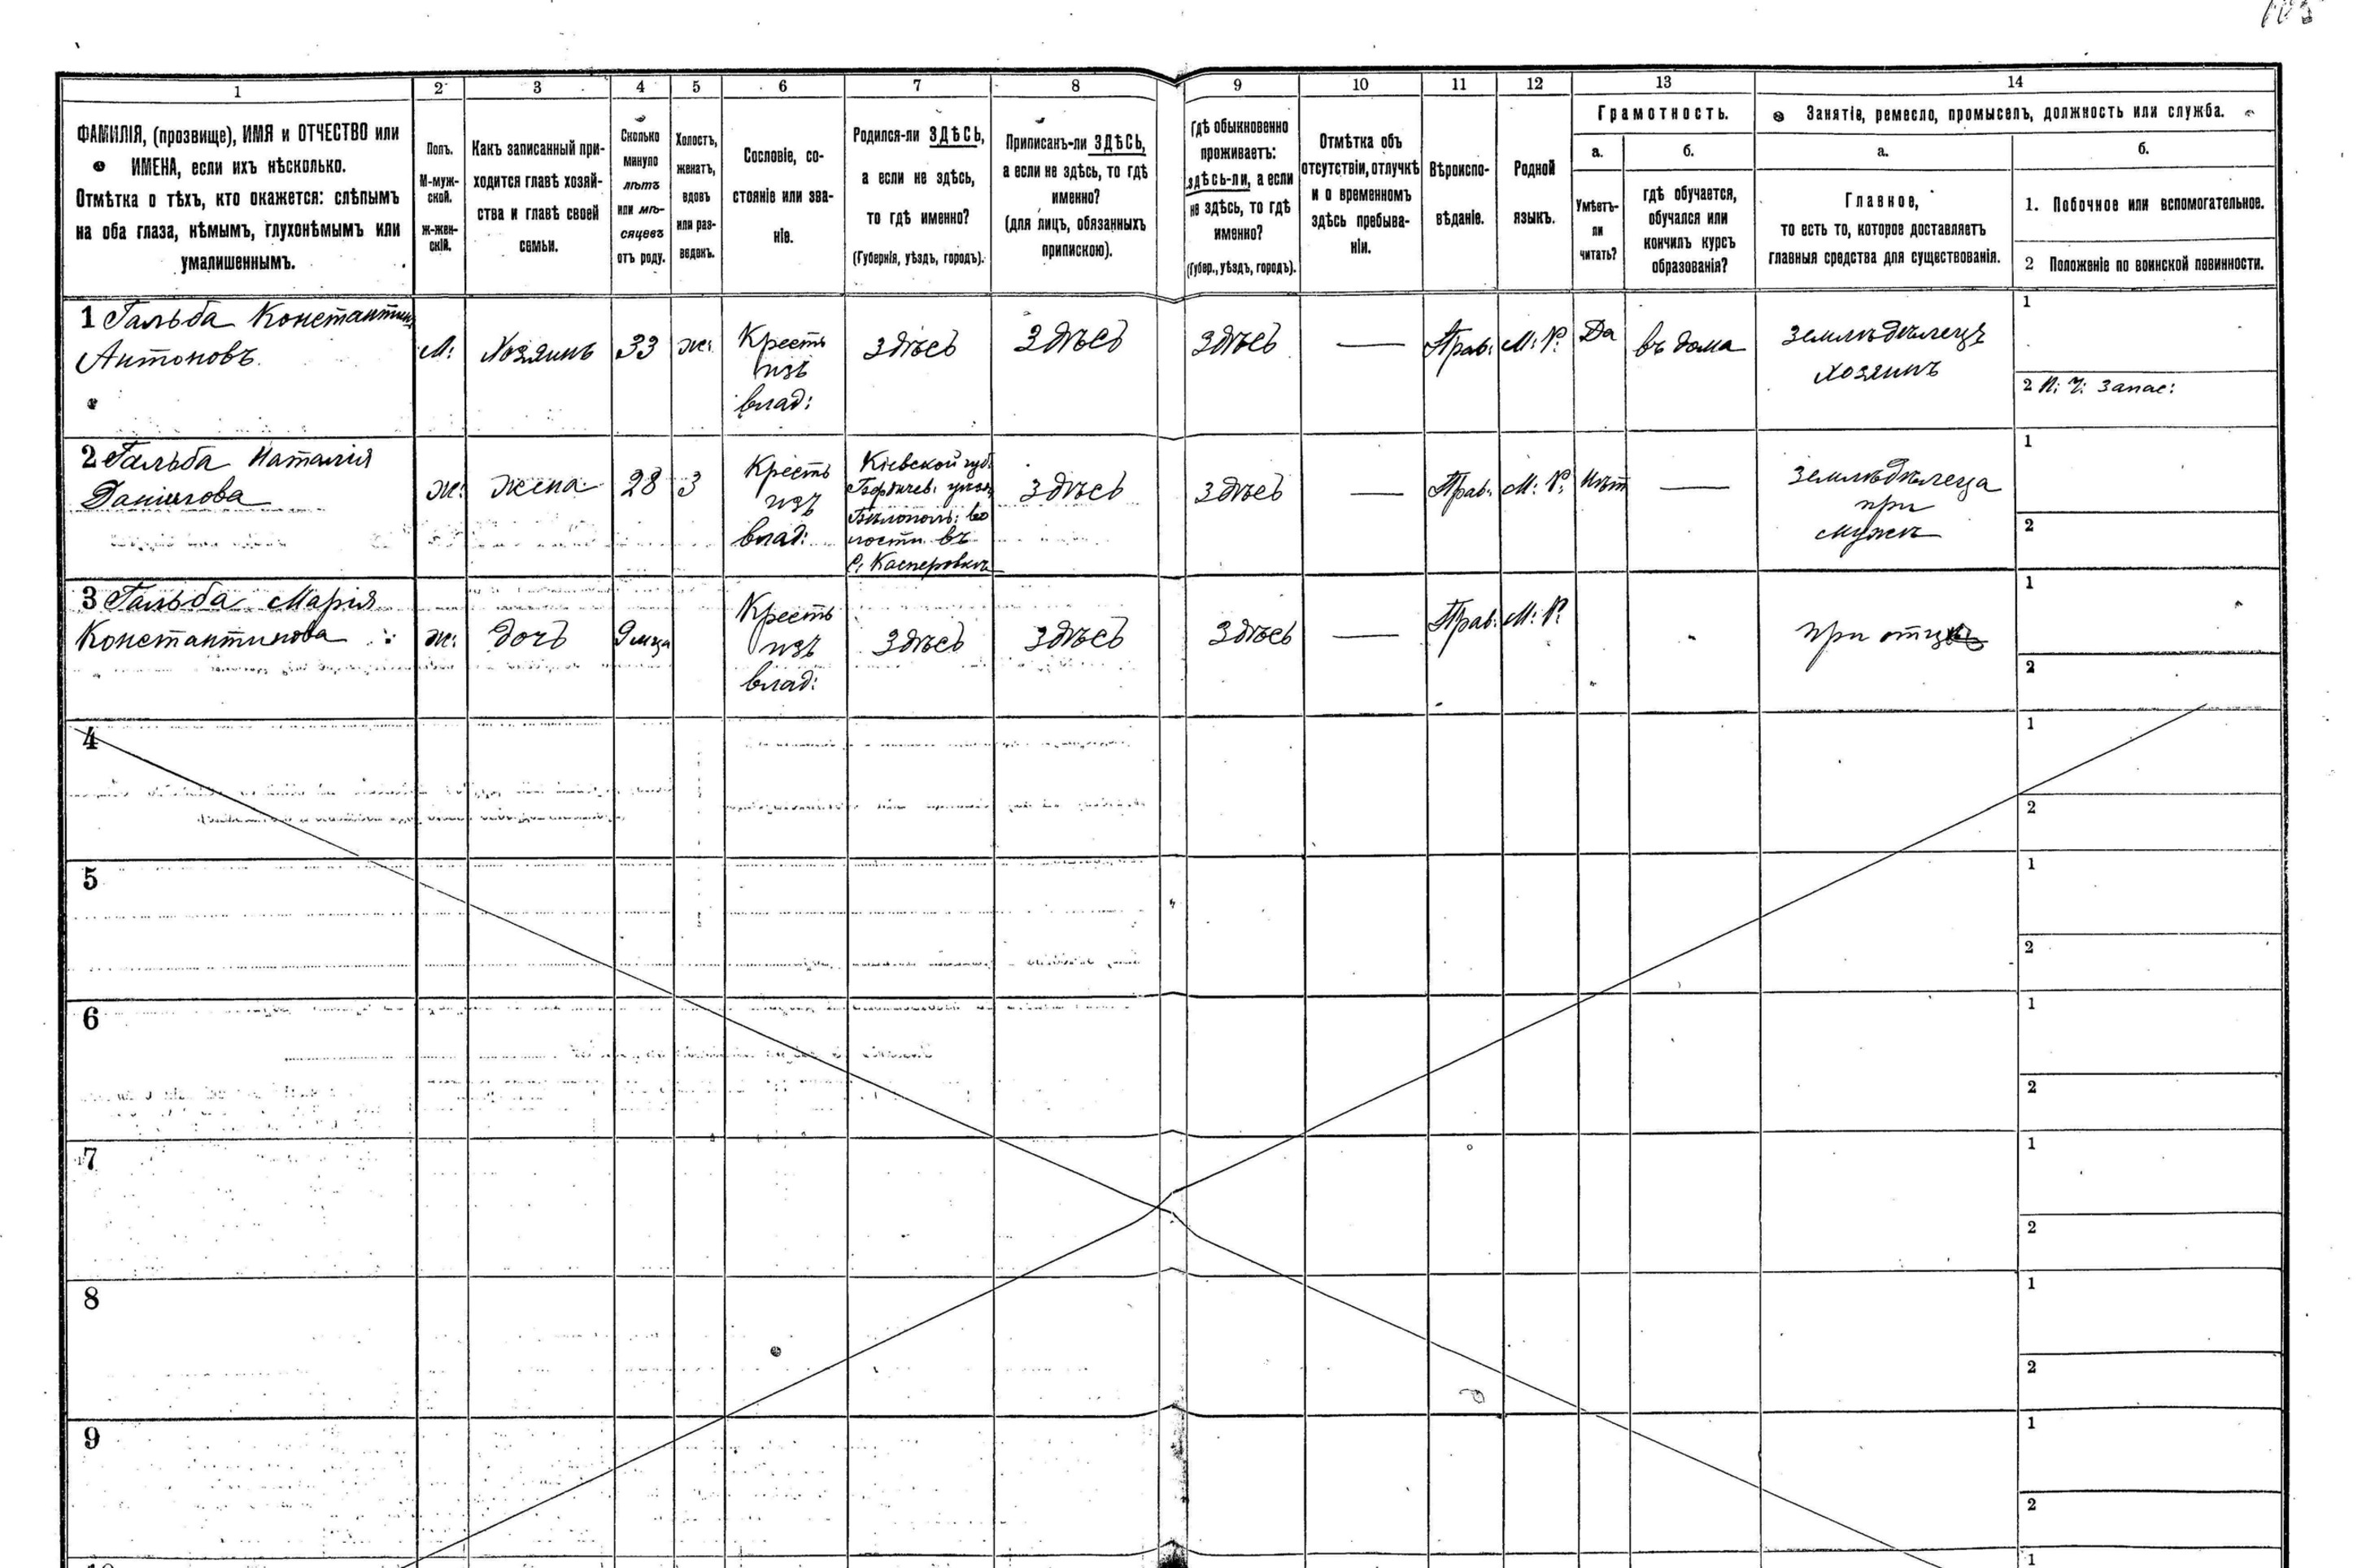 1 2 3 4 5 6 7 8 9 10 11 12 13 14
ФАМИЛІЯ, (прозвище), ИМЯ и ОТЧЕСТВО или
ИМЕНА, если ихъ нѣсколько.
Отмѣтка о тѣхъ, кто окажется: слѣпымъ
на оба глаза, нѣмымъ, глухонѣмымъ или
умалишеннымъ.
Полъ.
М-муж-
ской.
ж-жен-
скій.
Какъ записанный при-
ходится главѣ хозяй-
ства и главѣ своей
семьи.
Сколько
минуло
лѣтъ
или мѣ-
сяцевъ
отъ роду.
Холостъ,
женатъ,
вдовъ
или раз-
веденъ.
Сословіе, со-
стояніе или зва-
ніе.
Родился-ли ЗДѢСЬ,
а если не здѣсь,
то гдѣ именно?
(Губернія, уѣздъ, городъ).
Приписанъ-ли ЗДѢСЬ,
а если не здѣсь, то гдѣ
именно?
(для лицъ, обязанныхъ
припискою).
Гдѣ обыкновенно
проживаетъ:
здѣсь-ли, а если
не здѣсь, то гдѣ
именно?
(Губер., уѣздъ, городъ).
Отмѣтка объ
отсутствіи, отлучкѣ
и о временномъ
здѣсь пребыва-
ніи.
Вѣроиспо-
вѣданіе.
Родной
языкъ.
Грамотность.
а.
Умѣетъ-
ли
читать?
б.
гдѣ обучается,
обучался или
кончилъ курсъ
образованія?
Занятіе, ремесло, промыселъ, должность или служба.
а.
Главное,
то есть то, которое доставляетъ
главныя средства для существованія.
б.
1. Побочное или вспомогательное.
2 Положеніе по воинской повинности.
1 Гальба Константинъ
Антоновъ
М:
Хозяинъ
33
же:
Крестъ
изъ
влад:
здѣсь
здѣсь
здѣсь
—
Прав:
М: Р:
Да
въ дома
земледѣлецъ
хозяинъ
1
2 Н: Ч: запас:
2 Гальба Наталія
Данилова
же:
жена
28
3
Крестъ
изъ
влад:
Кіевской губ.
Бердичев: уѣзда
Бѣлополь: во
лости въ
с: Касперовкѣ
здѣсь
здѣсь
—
Прав:
М: Р:
Нѣт
—
земледѣлеца
при
мужѣ
1
2
3 Гальба Марія
Константинова
же:
дочь
9 мца
Крестъ
изъ
влад:
здѣсь
здѣсь
здѣсь
—
Прав:
М: Р:
при отцѣ
1
2
4
1
2
5
1
2
6
1
2
7
1
2
8
1
2
9
1
2
1